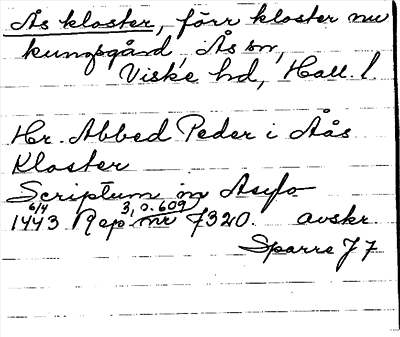 Ås kloster, förr kloster nu
kungsgård, Ås sn,
Viske hd, Hall. l.
Hr. Abbed Peder i Aås
Kloster
Scriptum in Asylo
6/4 3, o. 609
1443 Rep nr 7320. avskr
Sparre J 7